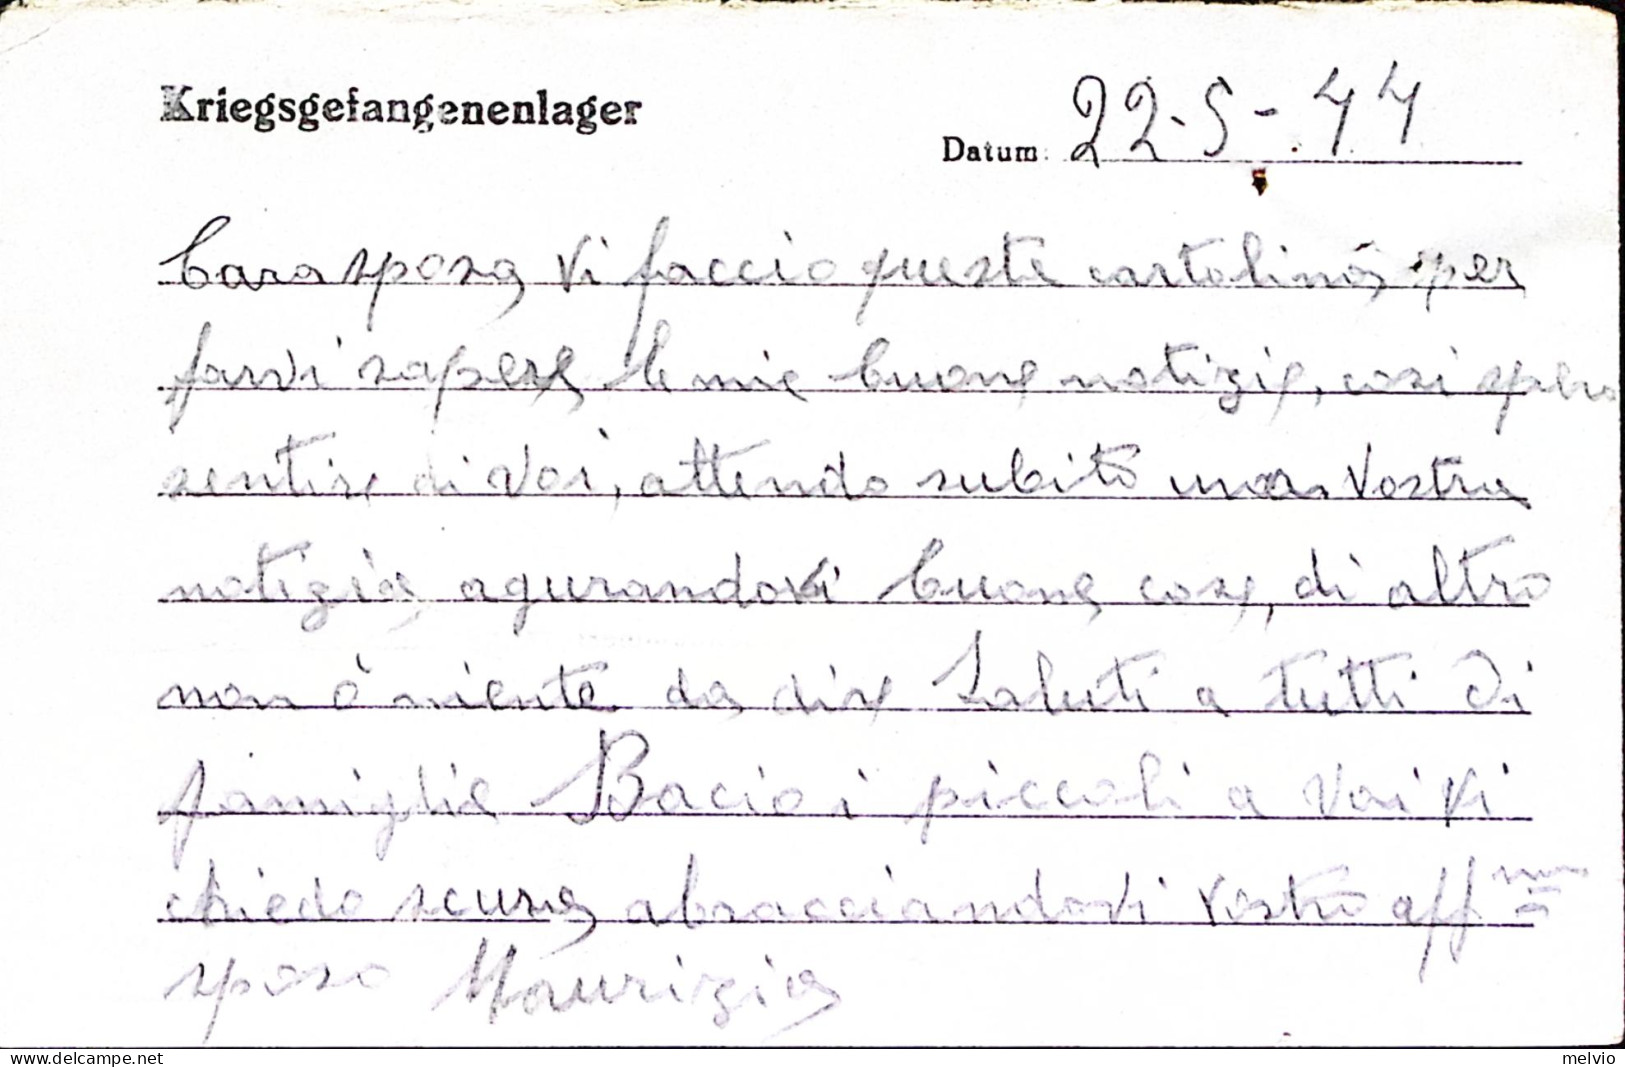 Kriegsgefangenenlager
Datum: 22-5-44
Cara sposa vi faccio queste cartolina per
farvi sapere le mie buone notizie, cosi spero
sentire di voi, attendo subito una Vostra
notizia agurandovi buone cose, di altro
non è niente da dire Saluti a tutti di
famiglie Bacio i piccoli a voi vi
chiedo scusa abracciandovi vostro aff.mo
sposo Maurizio
melvio